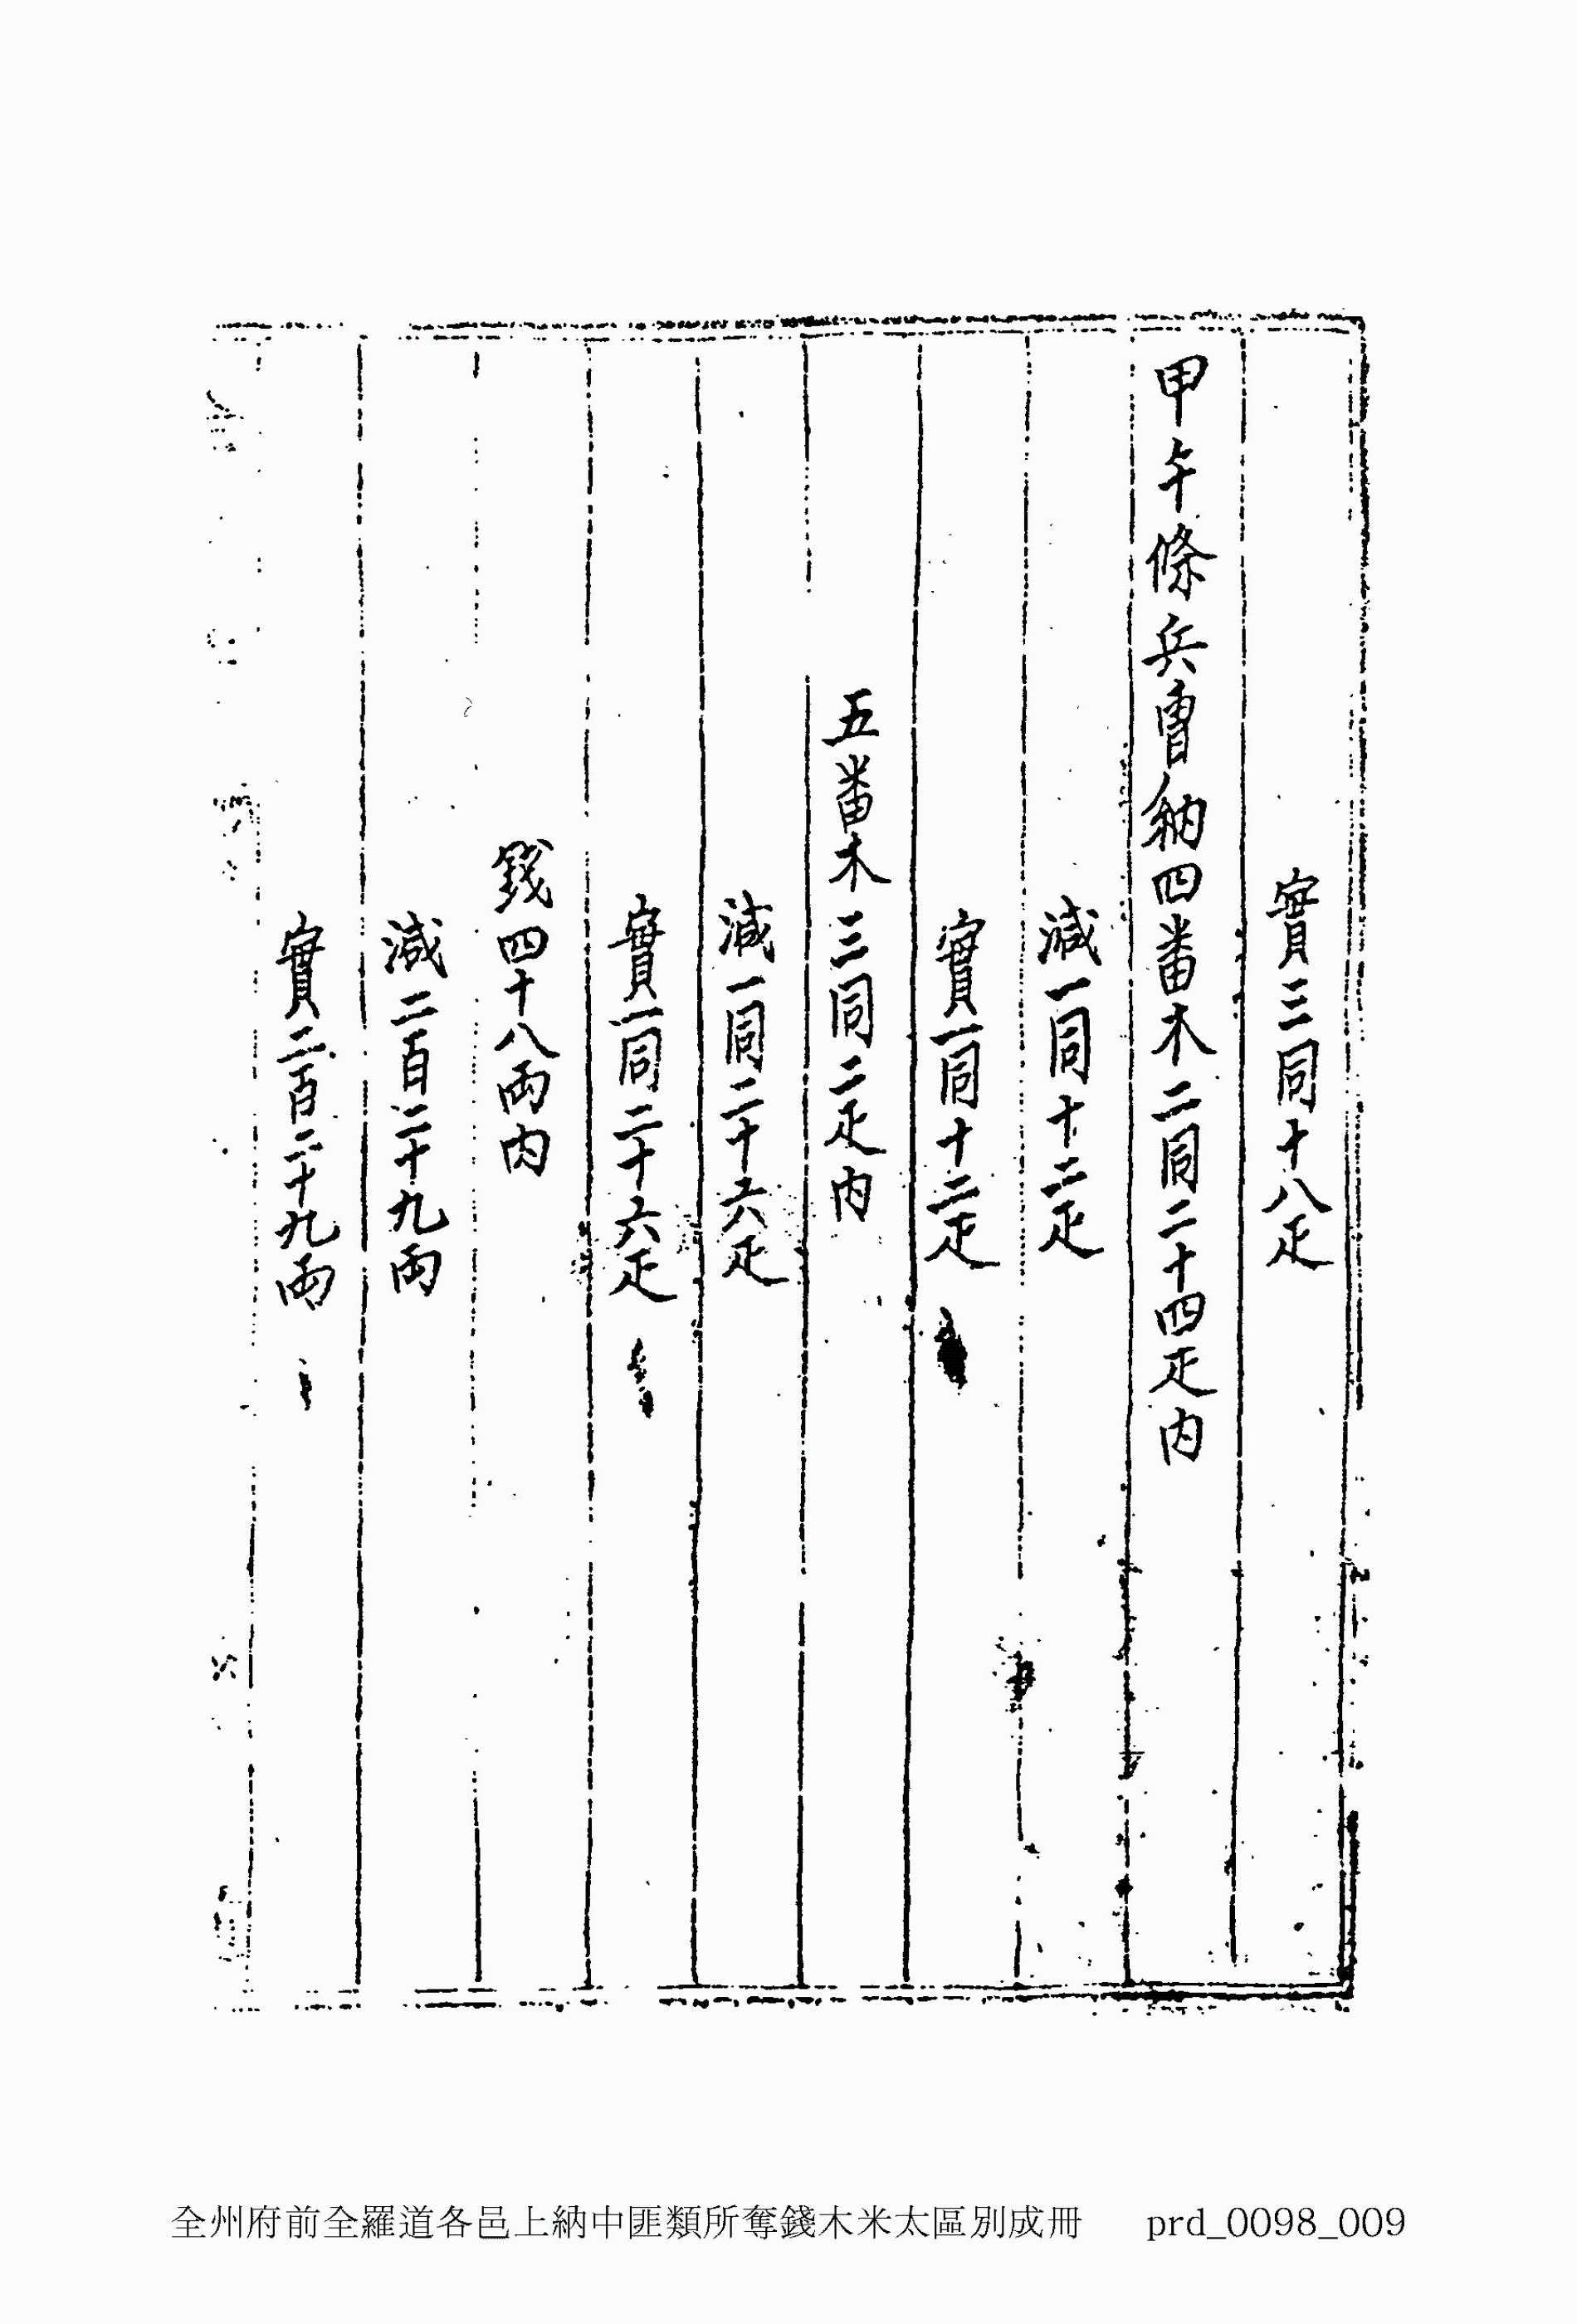 實三同十八疋
甲午條兵曹納四番木二同二十四疋內
減一同十二疋
實一同十二疋
五番木三同二疋內
減一同二十六疋
實一同二十六疋
錢四十八兩內
減二百二十九兩
實二百二十九兩
全州府前全羅道各邑上納中匪類所奪錢木米太區別成冊 prd_0098_009